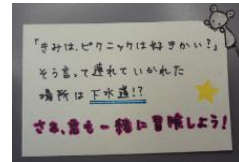 「きみは、ピクニックは好きかい？」
そう言って連れていかれた
場所は下水道!?
さぁ、君も一緒に冒険しよう！